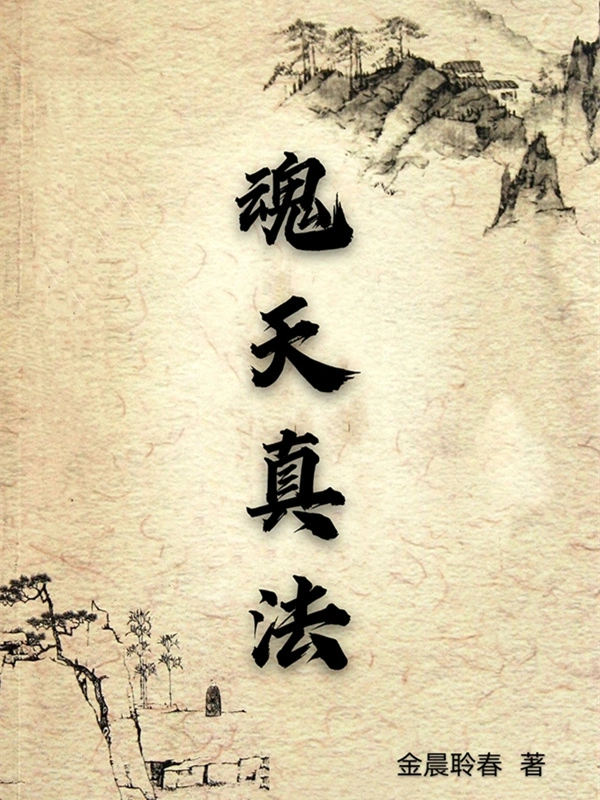 魂天真法
金晨聆春 著